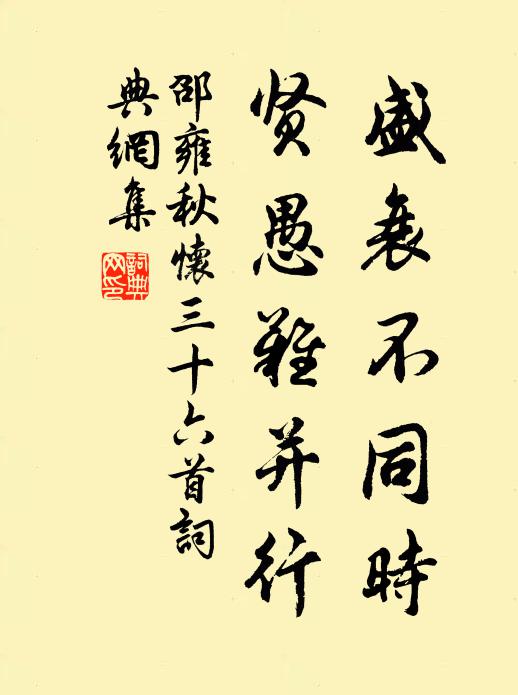 盛衰不同時
贤愚難并行
邵雍秋懷三十六首詞
典網集
詞典
网印